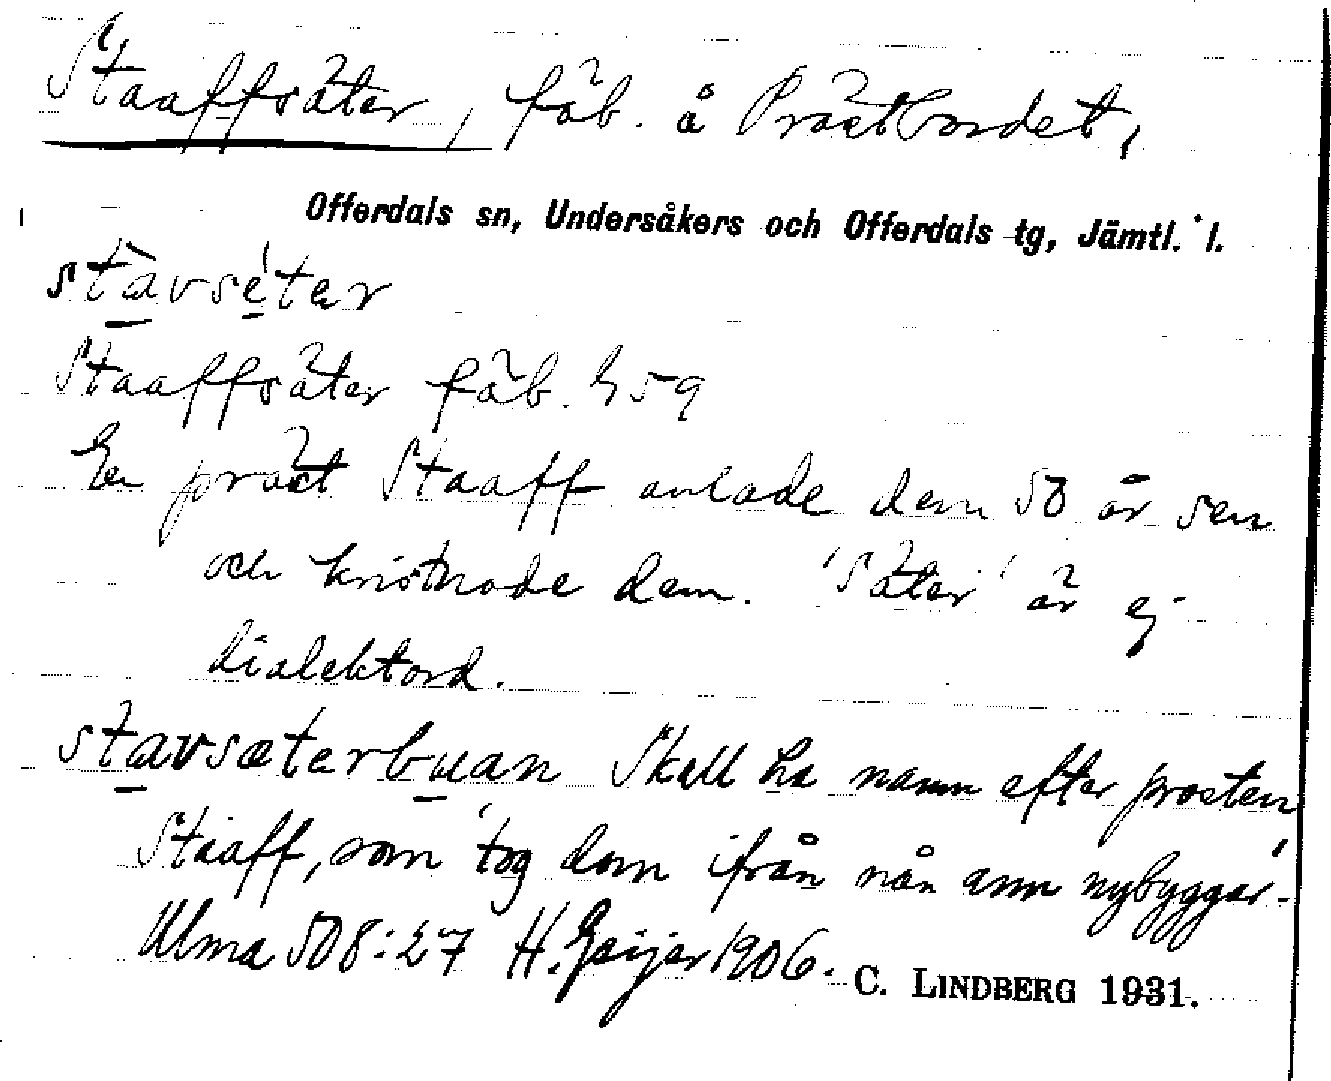 Staaffsäter, fäb. å Prästbordet,
Offerdals sn, Undersåkers och Offerdals tg, Jämtl. l.
stàvséter
Staaffsäter fäb. h 59
En präst Staaff anlade dem 50 år sen
och kristnade dem. 'Säter' är ej
dialektord.
stavsæterbuan Skall ha namn efter prosten
Staaff, som tog dom ifrån nån ann nybyggar.
Ulma 508:27 H. Geijer 1906.
C. LINDBERG 1931.